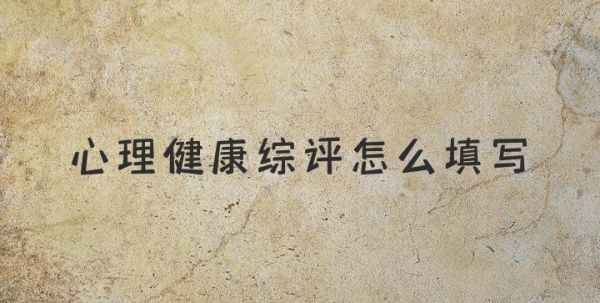 心理健康综评怎么填写